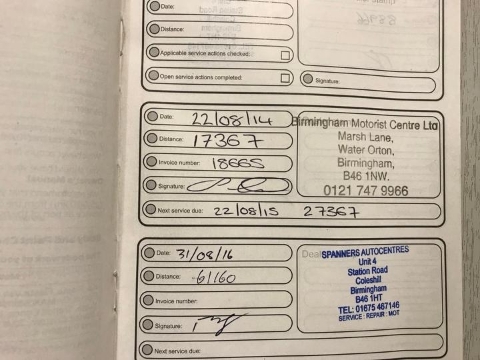 Date:
Distance:
Applicable service actions checked:
Open service actions completed:
Signature:
Date: 22/08/14
Distance: 17367
Invoice number: 18665
Signature:
Next service due: 22/08/15 27367
Birmingham Motorist Centre Ltd
Marsh Lane,
Water Orton,
Birmingham,
B46 1NW.
0121 747 9966
Date: 31/08/16
Distance: 61160
Invoice number:
Signature:
Next service due:
Deal
SPANNERS AUTOCENTRES
Unit 4
Station Road
Coleshill
Birmingham
B46 1HT
TEL: 01675 467146
SERVICE : REPAIR : MOT